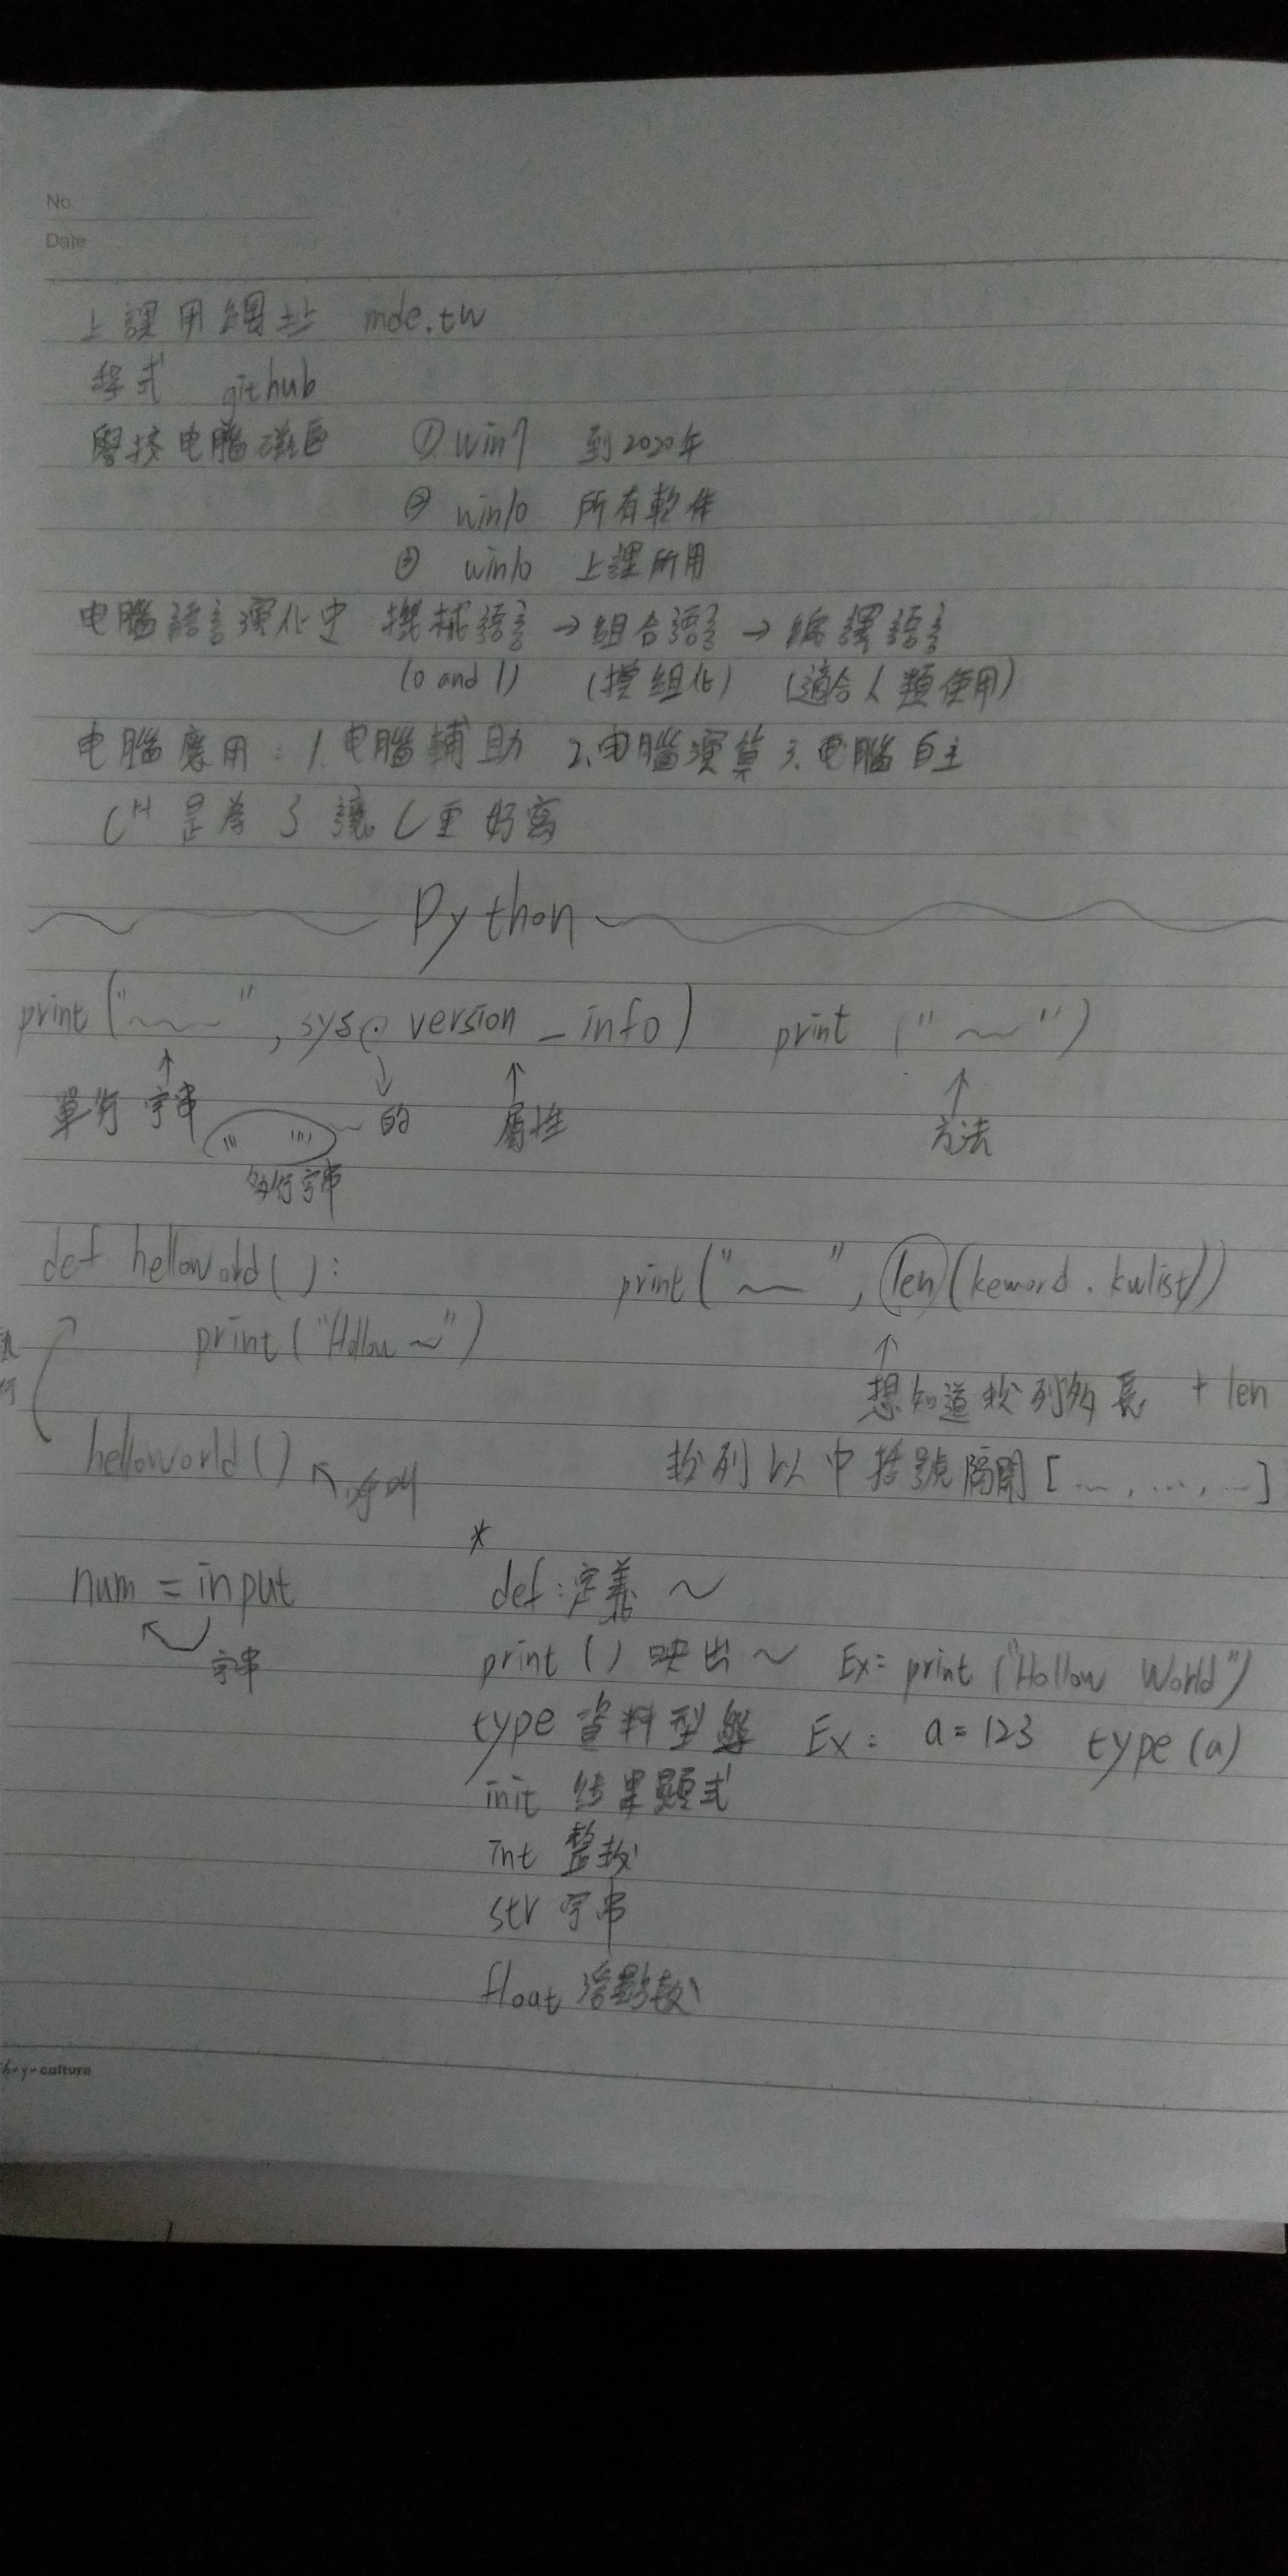 No.
Date
上課用網址 mde.tw
程式 github
學校电腦磁區 ① win7 到2020年
② win10 所有軟件
③ win10 上課所用
电腦語言演化史 機械語言 → 組合語言 → 編譯語言
(0 and 1) (模組化) (適合人類使用)
电腦應用：1.电腦輔助 2.电腦演算 3.电腦自主
C++ 是為了讓C更好寫
Python
print("~~~", sys. version_info) print ("~~")
↑ ↓ ↑ ↑
單行字串 '''' '''' 的 屬性 方法
多行字串
def helloworld():
print("~~", len(keword.kwlist))
print("Hollow ~")
↑
執行
想知道數列多長 + len
helloworld() ↖
數列以中括號隔開 [..., ..., ...]
*
num = input
字串
def:定義 ~
print () 映出 ~ Ex= print ("Hollow World")
type 資料型態 Ex: a=123 type(a)
init 結果顯式
int 整數
str 字串
float 浮點數
culture